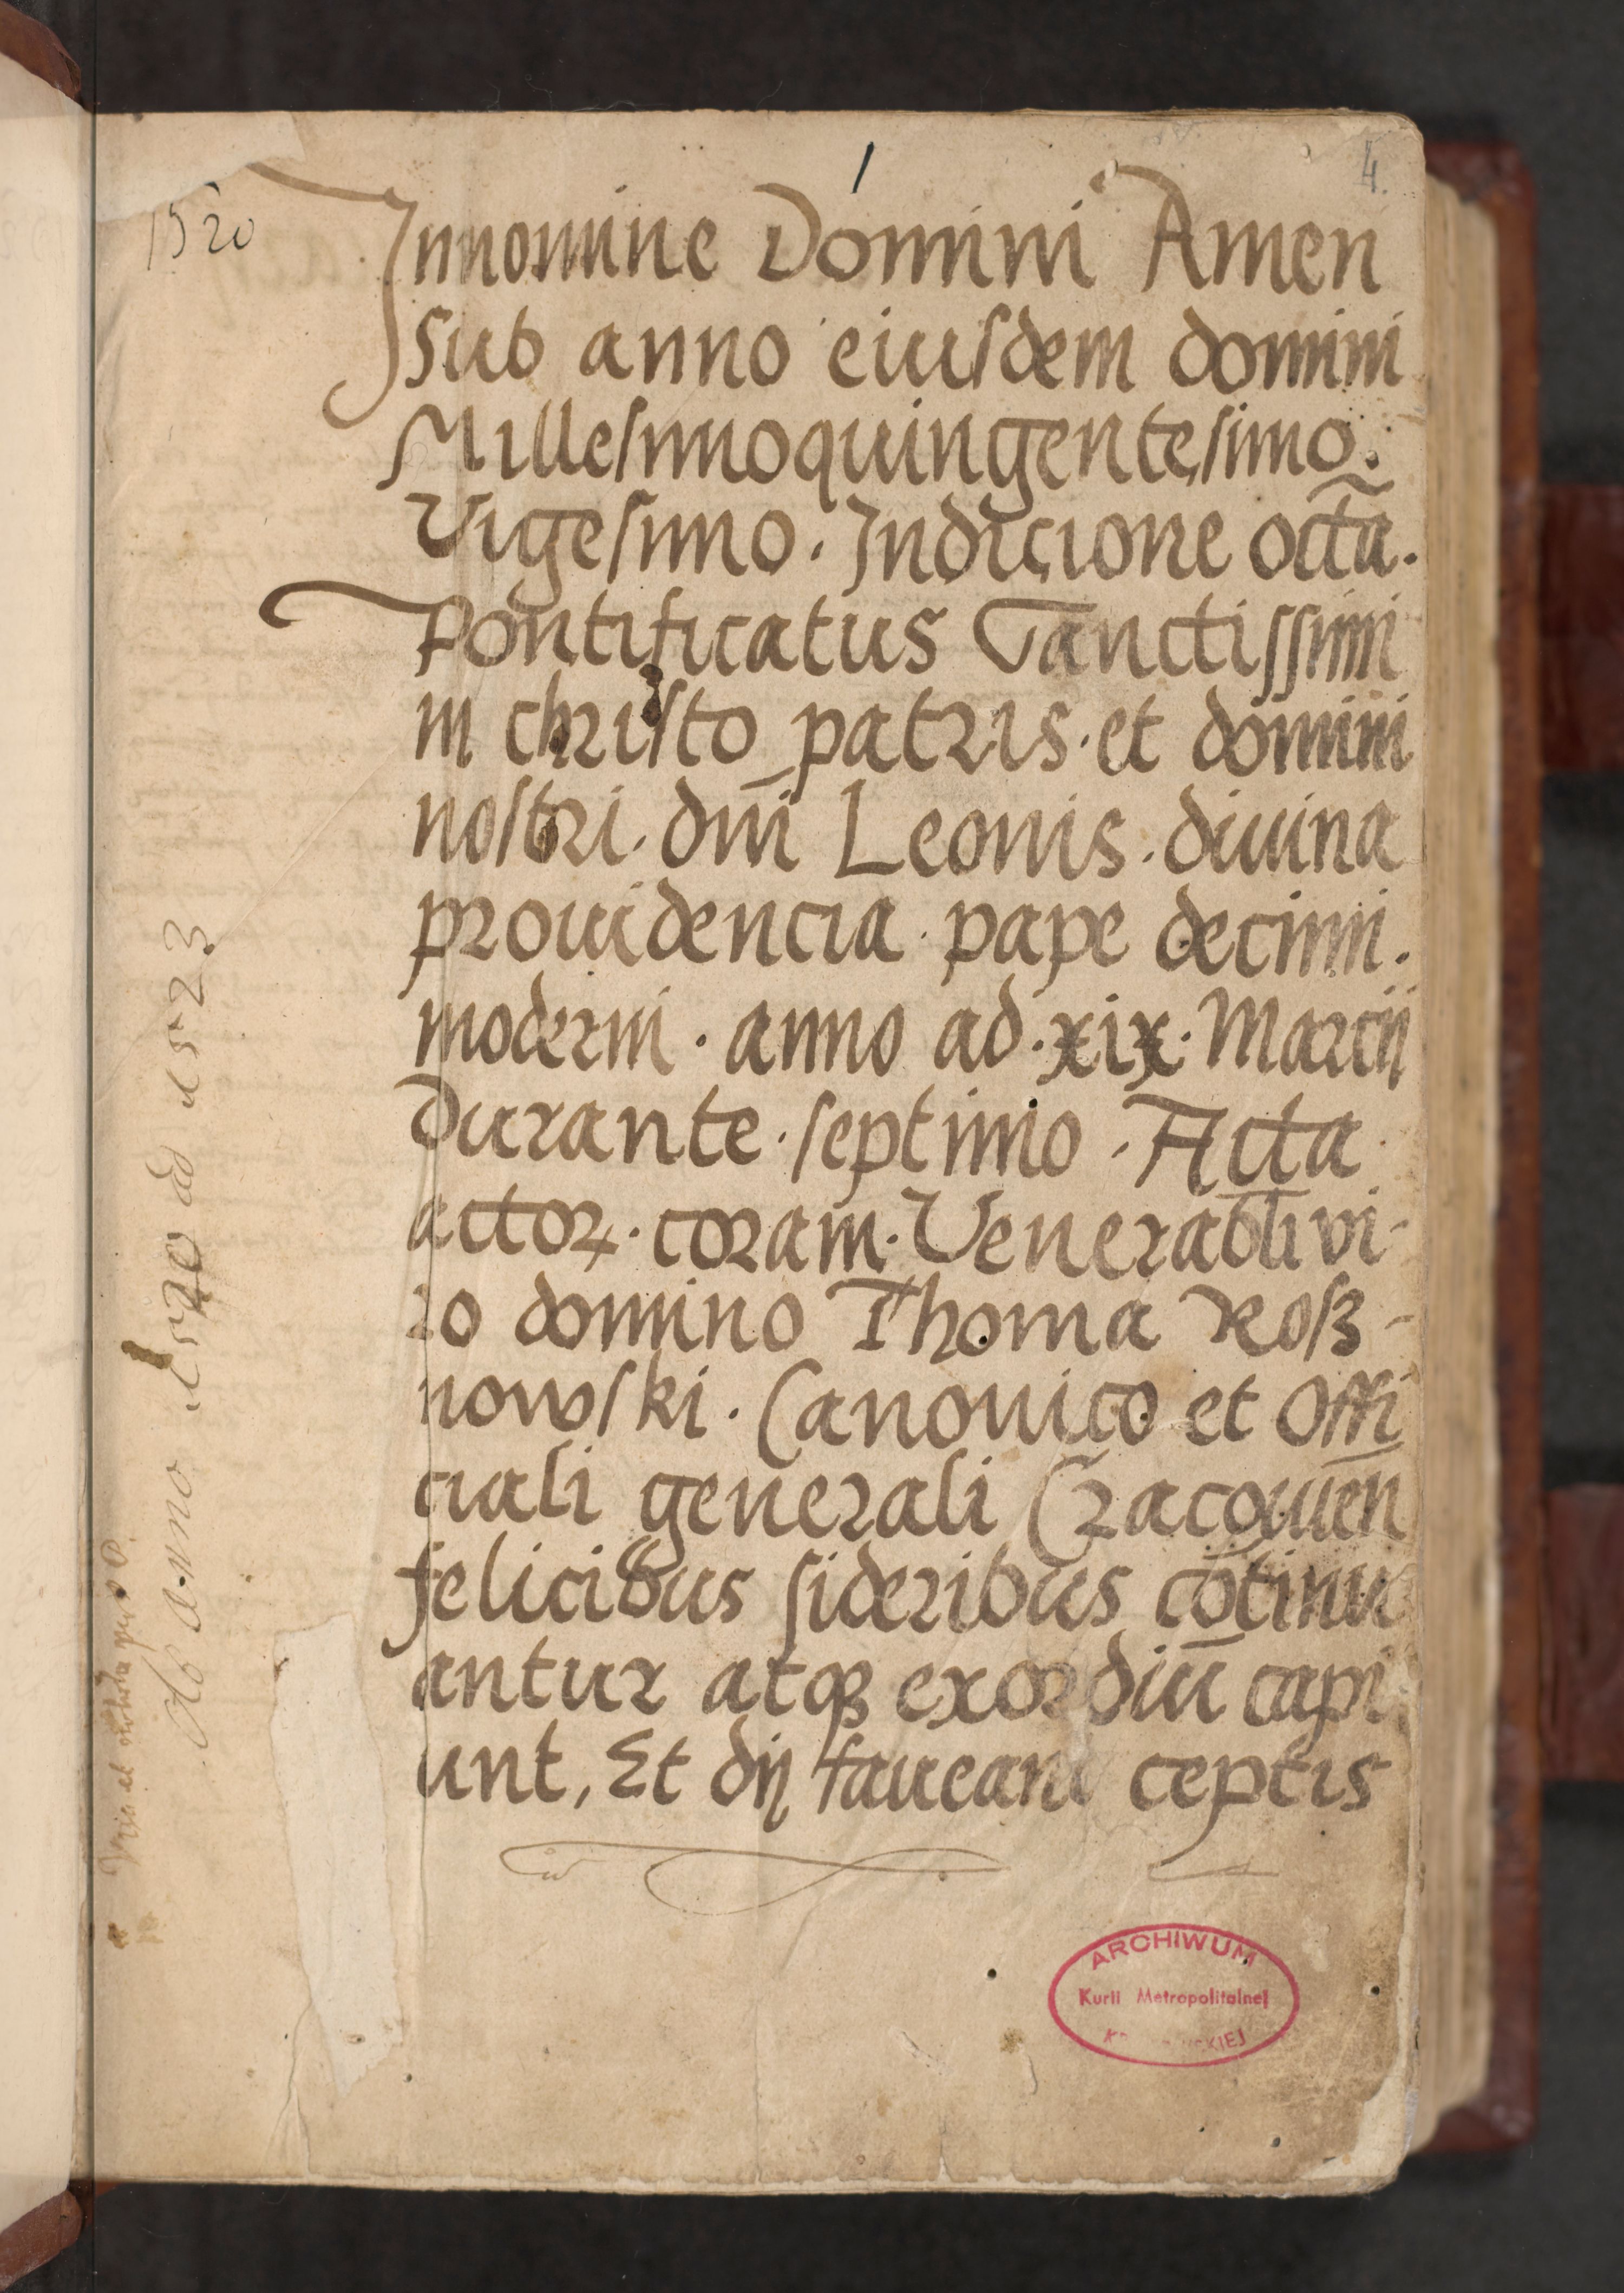 1
4.
1520
Innomine Domini Amen
sub anno eiusdem domini
Millesimoquingentesimo.
Vigesimo. Indicione octã.
Pontificatus Sanctissimi
in christo patris. et domini
nostri. dn̄i Leonis. diuina
prouidencia. pape decimi.
moderni. anno ad. xix. Marcij
durante. septimo. Acta
actoꝝ. coram. Venerabli vi-
ro domino Thoma Roſz-
nowſki. Canonico et Offi
ciali generali Cracouien̄
felicibus sideribus cōtinu
antur atqꝫ exordiū capi
unt, Et dij faueant ceptis
Ab anno 1520 ad 1523
ARCHIWUM
Kurii Metropolitalnej